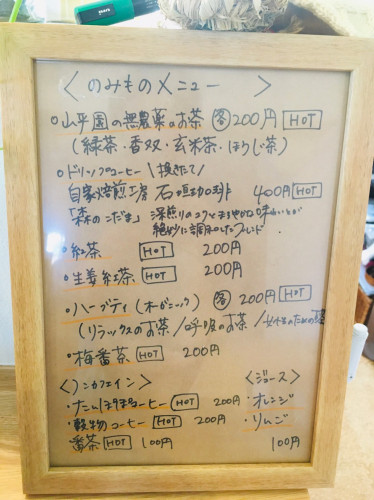 〈のみものメニュー 〉
山平園の無農薬のお茶 各200円 HOT
(緑茶・香双・玄米茶・ほうじ茶)
ドリップコーヒー \挽きたて/
自家焙煎工房 石垣珈琲 400円 HOT
「森のこだま」 深煎りのコクとまろやかな味わいとが
絶妙に調和したブレンド
・紅茶 HOT 200円
・生姜紅茶 HOT 200円
・ハーブティ(オーガニック) 各200円 HOT
(リラックスのお茶/呼吸のお茶/女性のためのお茶
・梅番茶 HOT 200円
〈ノンカフェイン〉 〈ジュース〉
・たんぽぽコーヒー HOT 200円 ・オレンジ
・穀物コーヒー HOT 200円 ・りんご
番茶 HOT 100円 100円